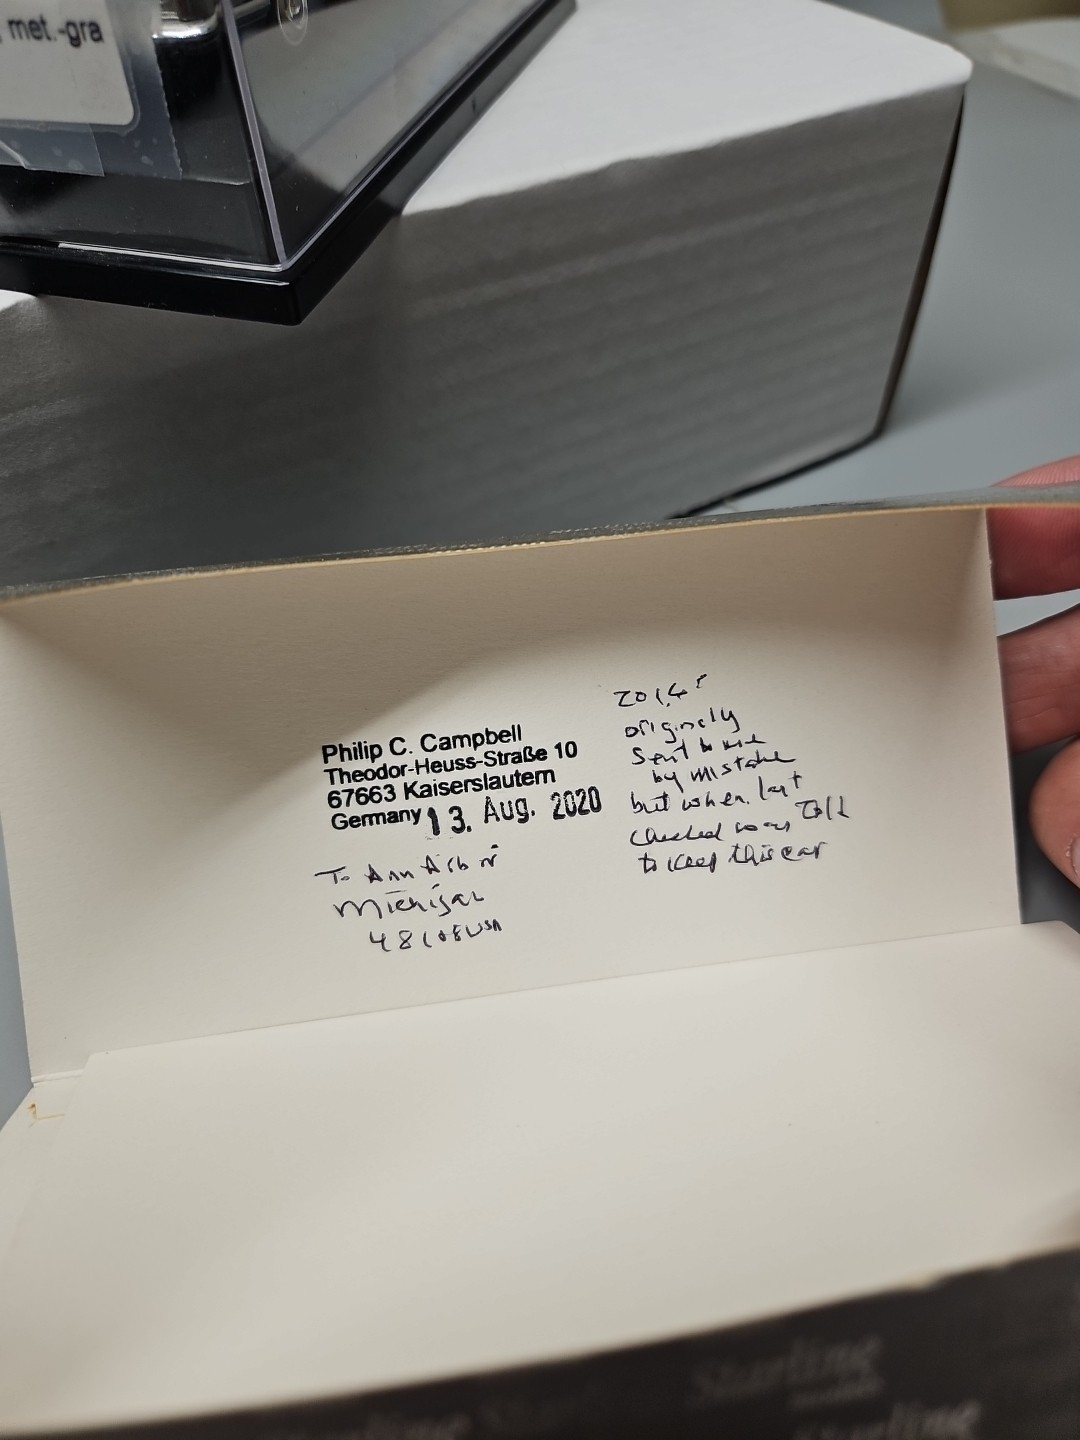 met.-gra
Philip C. Campbell
Theodor-Heuss-Straße 10
67663 Kaiserslautern
Germany 13. Aug. 2020
To Ann Arbor
Michigan
48108 USA
2014?
originely
sent to me
by mistake
but when last
checked was Told
to keep this car
Starline
Starline